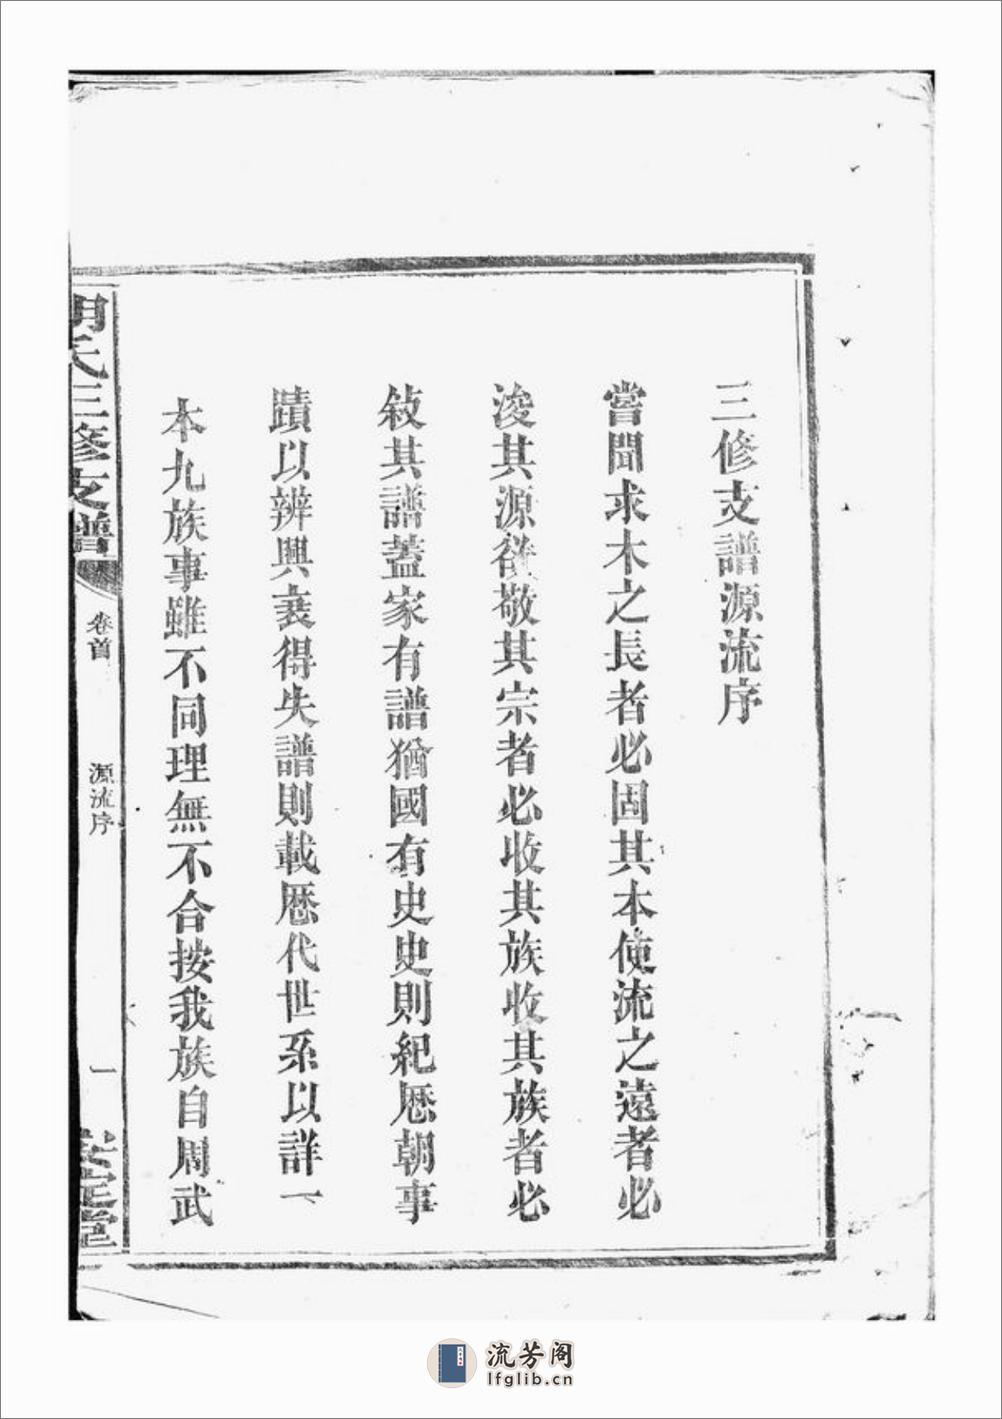 三修支譜源流序
嘗聞求木之長者必固其本使流之遠者必
浚其源欲敬其宗者必收其族收其族者必
敘其譜蓋家有譜猶國有史史則紀厯朝事
蹟以辨興衰得失譜則載厯代世系以詳一
本九族事雖不同理無不合按我族自周武
胡氏三修支譜
卷首
源流序
一
定堂
流芳阁
lfglib.cn